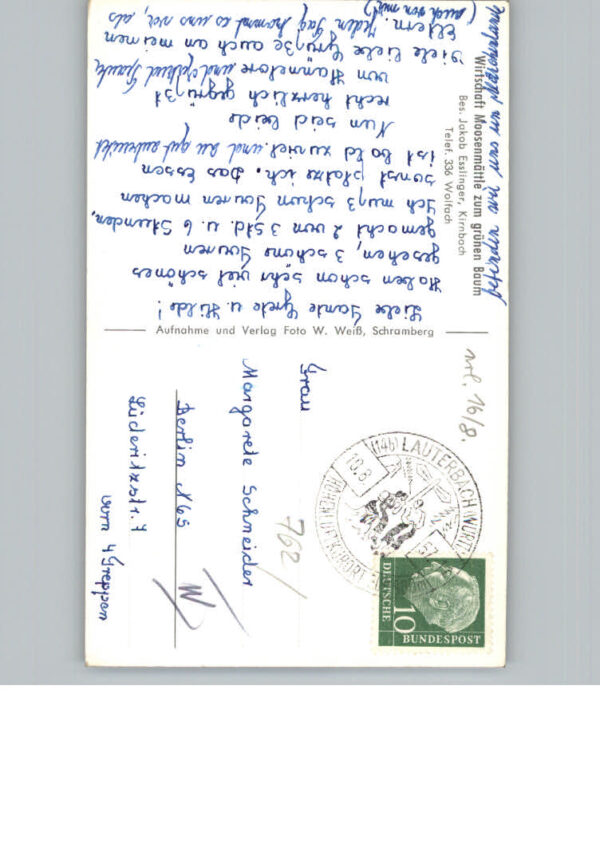 Wirtschaft Moosenmättle zum grünen Baum
Bes. Jakob Esslinger, Kirnbach
Telef. 336 Wolfach
Liebe Tante Grete u. Hilde!
Haben schon sehr viel schönes
gesehen, 3 schöne Touren
gemacht 2 von 3 Std. u. 6 Stunden,
Ich muß schon Touren machen
sonst platze ich. Das Essen
ist bald zuviel und zu gut
Nun seid beide
recht herzlich gegrüßt
von Hannelore und
Viele liebe Grüße auch an meinen
Eltern. Jeden Tag kommt es uns vor, als
(auch von mir)
Aufnahme und Verlag Foto W. Weiß, Schramberg
nrl. 16/8.
Frau
Margarete Schneider
Berlin N 65
Lüderitzstr. 4
vorn 4 Treppen
762/
W
(14b) LAUTERBACH (WÜRTT
19.8.
57
HÖHENLUFTKURORT
DEUTSCHE
BUNDESPOST
10